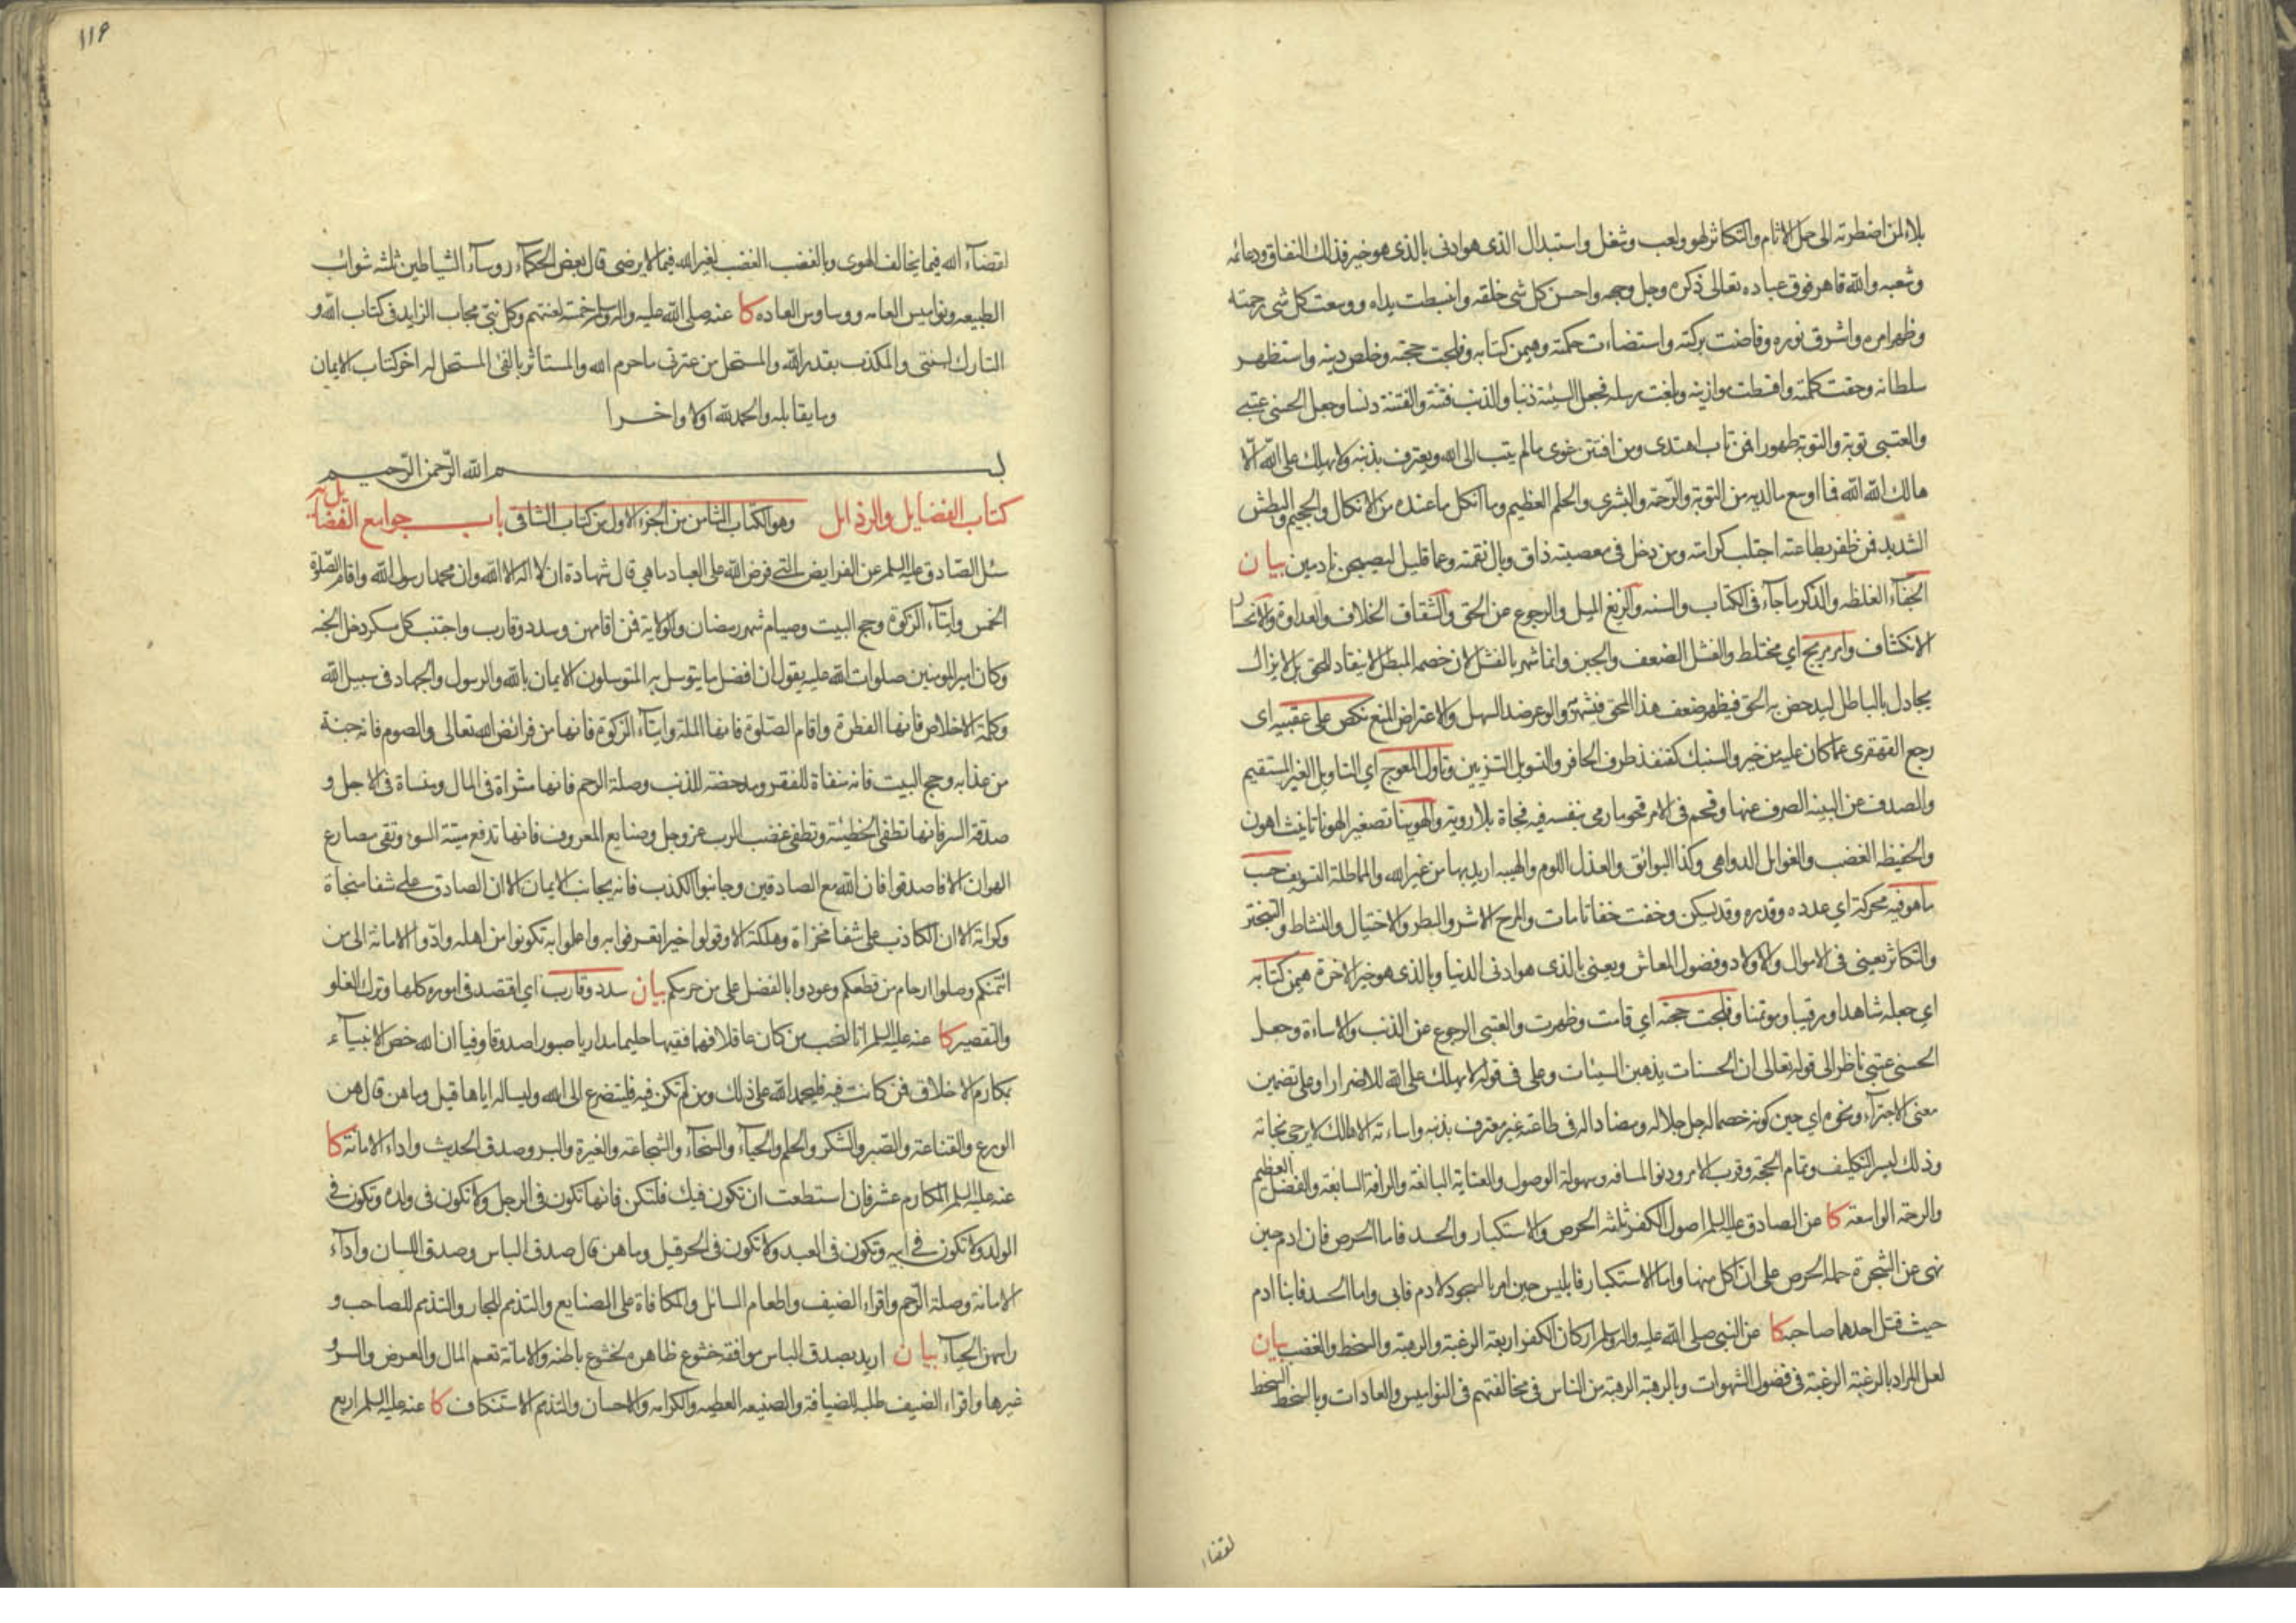 بلاء لمن اضطرته الى حمل الاثام والتكاثر لهو ولعب وشغل واستبدال الذى هو ادنى بالذى هو خير فذلك النفاق ودعائمه
وشعبه والله قاهر فوق عباده تعالى ذكره وجل وجهه واحسن كل شى خلقه وانبسطت يداه ووسعت كل شى رحمته
وظهر امره واشرق نوره وفاضت بركته واستضاءت حكمته وهيمن كتابه وفلجت حجته وخلص دينه واستظهر
سلطانه وحقت كلمته واقسطت موازينه وبلغت رسله فجعل السيئة ذنبا والذنب فتنة والفتنة دنسا وجعل الحسنى عتبى
والعتبى توبة والتوبة طهورا فمن تاب اهتدى ومن افتتن غوى مالم يتب الى الله ويعترف بذنبه ولا يهلك على الله الا
هالك الله الله فما اوسع مالديه من التوبة والرحمة والبشرى والحلم العظيم وما انكل ما عنده من الانكال والجحيم والبطش
الشديد فمن ظفر بطاعته اجتلب كرامته ومن دخل فى معصيته ذاق وبال نقمته وعما قليل ليصبحن نادمين بيان
الجفاء الغلظه والذكر ما جاء فى الكتاب والسنه والزيغ الميل والرجوع عن الحق والشقاق الخلاف والعداوة والانحسار
الانكشاف وامر مريج اي مختلط والفشل الضعف والجبن وانما شهر بالفشل لان خصمه المبطل لا ينقاد للحق بل لا يزال
يجادل بالباطل ليدحض به الحق فيظهر ضعف هذا المحق فيشهر والوعر ضد السهل والاعتراض المنع نكص على عقبيه اى
رجع القهقرى عما كان عليه من خير والسنبك كقنفذ طرف الحافر والتسويل التزيين وتاول المعوج اي التاويل الغير المستقيم
والصدف عن البينه الصرف عنها وقحم فى الامر قحوما رمى بنفسه فيه فجاة بلا روية والهوينا تصغير الهونا تانيث اهون
والحفيظه الغضب والغوايل الدواهى وكذا البوائق والعذل اللوم والهيبه اريد بها من غير الله والمماطلة التسويف حسب
ما هو فيه محركة اي عدده وقدره وقد يسكن وخفت خفاتا مات والمرح الاشر والبطر والاختيال والنشاط والتبختر
والتكاثر يعنى فى الاموال والاولاد وفضول المعاش ويعنى بالذى هو ادنى الدنيا وبالذى هو خير الاخرة هيمن كتابه
اي جعله شاهدا ورقيبا ومؤتمنا وفلجت حجته اي قامت وظهرت والعتبى الرجوع عن الذنب والاساءة وجعل
الحسنى عتبى ناظر الى قوله تعالى ان الحسنات يذهبن السيئات وعلى فى قوله لا يهلك على الله للاضرار او على تضمين
معنى الاجتراء ونحوه اي حين كونه خصما له جل جلاله ومضادا له فى طاعته غير معترف بذنبه واساءته الا هالك لا يرجى نجاته
وذلك ليسر التكليف وتمام الحجة وقرب الامر ودنو المسافه وسهولة الوصول والعناية البالغة والرافة السابغة والفضل العظيم
والرحمة الواسعة كا عن الصادق عليه السلم اصول الكفر ثلثة الحرص والاستكبار والحسد فاما الحرص فان ادم حين
نهى عن الشجرة حمله الحرص على ان اكل منها واما الاستكبار فابليس حين امر بالسجود لادم فابى واما الحسد فابنا ادم
حيث قتل احدهما صاحبه كا عن النبى صلى الله عليه واله وسلم اركان الكفر اربعة الرغبة والرهبة والسخط والغضب بيان
لعل المراد بالرغبة الرغبة فى فضول الشهوات وبالرهبة الرهبة من الناس فى مخالفتهم فى النواميس والعادات وبالسخط السخط
لقضاء
١١٦
لقضاء الله فيما يخالف الهوى وبالغضب الغضب لغير الله فيما لا يرضى قال بعض الحكماء روساء الشياطين ثلثة شوائب
الطبيعه ونواميس العامه ووساوس العاده كا عنه صلى الله عليه واله وسلم خمسة لعنتهم وكل نبى مجاب الزايد فى كتاب الله و
التارك لسنتى والمكذب بقدر الله والمستحل من عترتى ما حرم الله والمستاثر بالفئ المستحل له اخر كتاب الايمان
وما يقابله والحمد لله اولا واخرا
بسم الله الرحمن الرحيم
كتاب الفضايل والرذايل وهو الكتاب الثامن من الجزء الاول من كتاب الشافى باب جوامع الفضايل يه
سئل الصادق عليه السلم عن الفرايض التى فرض الله على العباد ما هى قال شهادة ان لا اله الا الله وان محمدا رسول الله واقام الصلوة
الخمس وايتاء الزكوة وحج البيت وصيام شهر رمضان والولاية فمن اقامهن وسدد وقارب واجتنب كل مسكر دخل الجنه
وكان امير المومنين صلوات الله عليه يقول ان افضل ما يتوسل به المتوسلون الايمان بالله والرسول والجهاد فى سبيل الله
وكلمة الاخلاص فانها الفطرة واقام الصلوة فانها الملة وايتاء الزكوة فانها من فرائض الله تعالى والصوم فانه جنة
من عذابه وحج البيت فانه منفاة للفقر ومدحضة للذنب وصلة الرحم فانها مثراة فى المال ومنساة فى الاجل و
صدقة السر فانها تطفى الخطيئة وتطفى غضب الرب عز وجل وصنايع المعروف فانها تدفع ميتة السوء وتقى مصارع
الهوان الا فاصدقوا فان الله مع الصادقين وجانبوا الكذب فانه يجانب الايمان الا ان الصادق على شفا منجاة
وكرامة الا ان الكاذب على شفا مخزاة وهلكة الا وقولوا خيرا تعرفوا به واعملوا به تكونوا من اهله وادوا الامانة الى من
ائتمنكم وصلوا ارحام من قطعكم وعودوا بالفضل على من حرمكم بيان سدد وقارب اي اقتصد فى اموره كلها وترك الغلو
والتقصير كا عنه عليه السلم انا لنحب من كان عاقلا فهما فقيها حليما مداريا صبورا صدوقا وفيا ان الله خص الانبياء
بمكارم الاخلاق فمن كانت فيه فليحمد الله على ذلك ومن لم تكن فيه فليتضرع الى الله وليساله اياها قيل وما هن قال هن
الورع والقناعة والصبر والشكر والحلم والحياء والسخاء والشجاعة والغيرة والبر وصدق الحديث واداء الامانة كا
عنه عليه السلم المكارم عشر فان استطعت ان تكون فيك فلتكن فانها تكون فى الرجل ولا تكون فى ولده وتكون فى
الولد ولا تكون فى ابيه وتكون فى العبد ولا تكون فى الحر قيل وما هن قال صدق الباس وصدق اللسان واداء
الامانة وصلة الرحم واقراء الضيف واطعام السائل والمكافاة على الصنايع والتذمم للجار والتذمم للصاحب و
راسهن الحياء بيان اريد بصدق الباس موافقه خشوع ظاهره لخشوع باطنه والامانة تعم المال والعرض والسر و
غيرها واقراء الضيف طلبه للضيافة والصنيعه العطيه والكرامه والاحسان والتذمم الاستنكاف كا عنه عليه السلم اربع